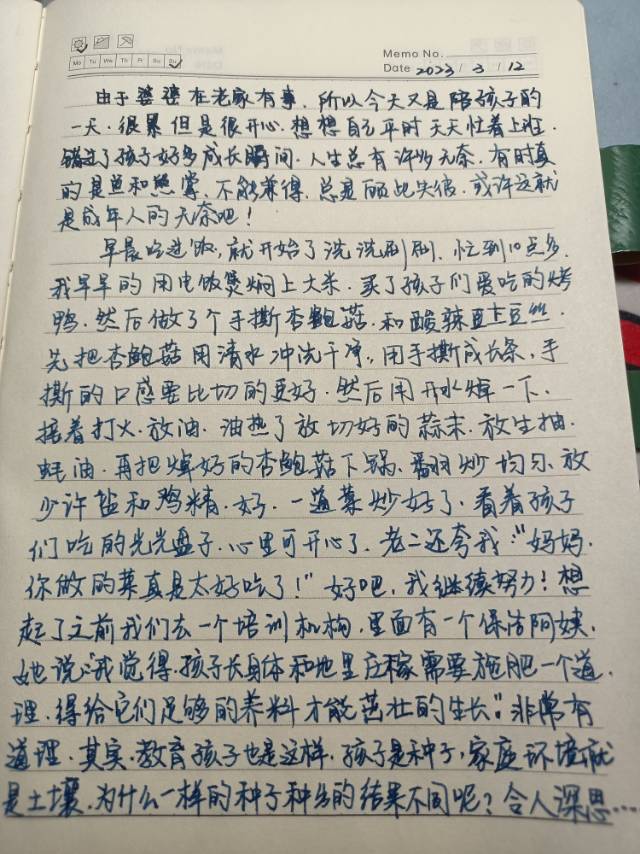 Memo No.
Mo Tu We Th Fr Sa Su
Date 2023 / 3 / 12
由于婆婆在老家有事，所以今天又是陪孩子的
一天。很累但是很开心。想想自己平时天天忙着上班，
错过了孩子好多成长瞬间。人生总有许多无奈，有时真
的是鱼和熊掌，不能兼得，总是顾此失彼，或许这就
是成年人的无奈吧！
早晨吃过饭，就开始了洗洗刷刷，忙到10点多，
我早早的用电饭煲焖上大米，买了孩子们爱吃的烤
鸭，然后做了个手撕杏鲍菇，和酸辣土豆丝。
先把杏鲍菇用清水冲洗干净，用手撕成长条，手
撕的口感要比切的更好，然后用开水焯一下，
接着打火，放油，油热了放切好的蒜末，放生抽，
蚝油，再把焯好的杏鲍菇下锅，翻炒均匀，放
少许盐和鸡精，好，一道菜炒好了，看着孩子
们吃的光光盘子，心里可开心了，老二还夸我：“妈妈，
你做的菜真是太好吃了！”好吧，我继续努力！想
起了之前我们去一个培训机构，里面有一个保洁阿姨，
她说：“我觉得，孩子长身体和地里庄稼需要施肥一个道
理，得给它们足够的养料才能茁壮的生长”。非常有
道理，其实，教育孩子也是这样，孩子是种子，家庭环境就
是土壤，为什么一样的种子种出的结果不同呢？令人深思……